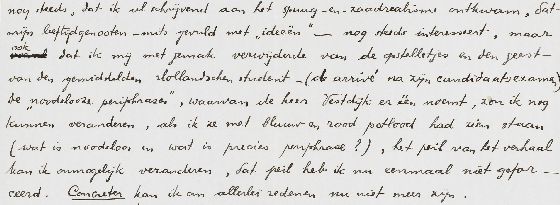 nog steeds, dat ik al schrijvend aan het genre- en zaadrealisme ontkwam, dat
mijn leeftijdgenooten - mits gevuld met "ideeën" - nog steeds interesseert, maar
ook dat ik mij met gemak verwijderde van de opstelletjes en den geest
van den gemiddelden Hollandschen student - (de arrivé na zijn candidaatsexamen)
De noodelooze periphrases", waarvan de heer Vestdijk er één noemt, zou ik nog
kunnen veranderen, als ik ze met blauw en rood potlood had zien staan
(wat is noodeloos en wat is precies periphrase?), het peil van het verhaal
kan ik onmogelijk veranderen, dat peil heb ik nu eenmaal niet gefor-
ceerd. Concreter kan ik om allerlei redenen nu niet meer zijn.